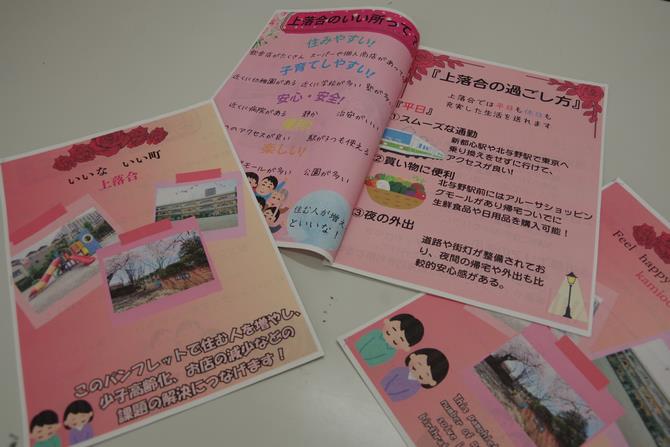 いいな いい町
上落合
このパンフレットで住む人を増やし、
少子高齢化、お店の減少などの
課題の解決につなげます！
上落合のいい所って
住みやすい!
飲食店がたくさん スーパーや個人商店があって
子育てしやすい!
近くに幼稚園がある 近くに学校が多い 塾が多
安心・安全!
近くに病院がある 静か 治安がいい
のアクセスが良い 駅が3つも使える
楽しい!
モールが多い 公園が多い
住む人が増え
といいな!
『上落合の過ごし方』
上落合では平日も休日も
充実した生活を送れます
『平日』
①スムーズな通勤
新都心駅や北与野駅で東京へ
乗り換えをせずに行けて、
アクセスが良い!
②買い物に便利
北与野駅前にはアルーサショッピン
グモールがあり帰宅ついでに
生鮮食品や日用品を購入可能!
③夜の外出
道路や街灯が整備されてお
り、夜間の帰宅や外出も比
較的安心感がある。
Feel happy
kami
This pamph
number of
solve
birth